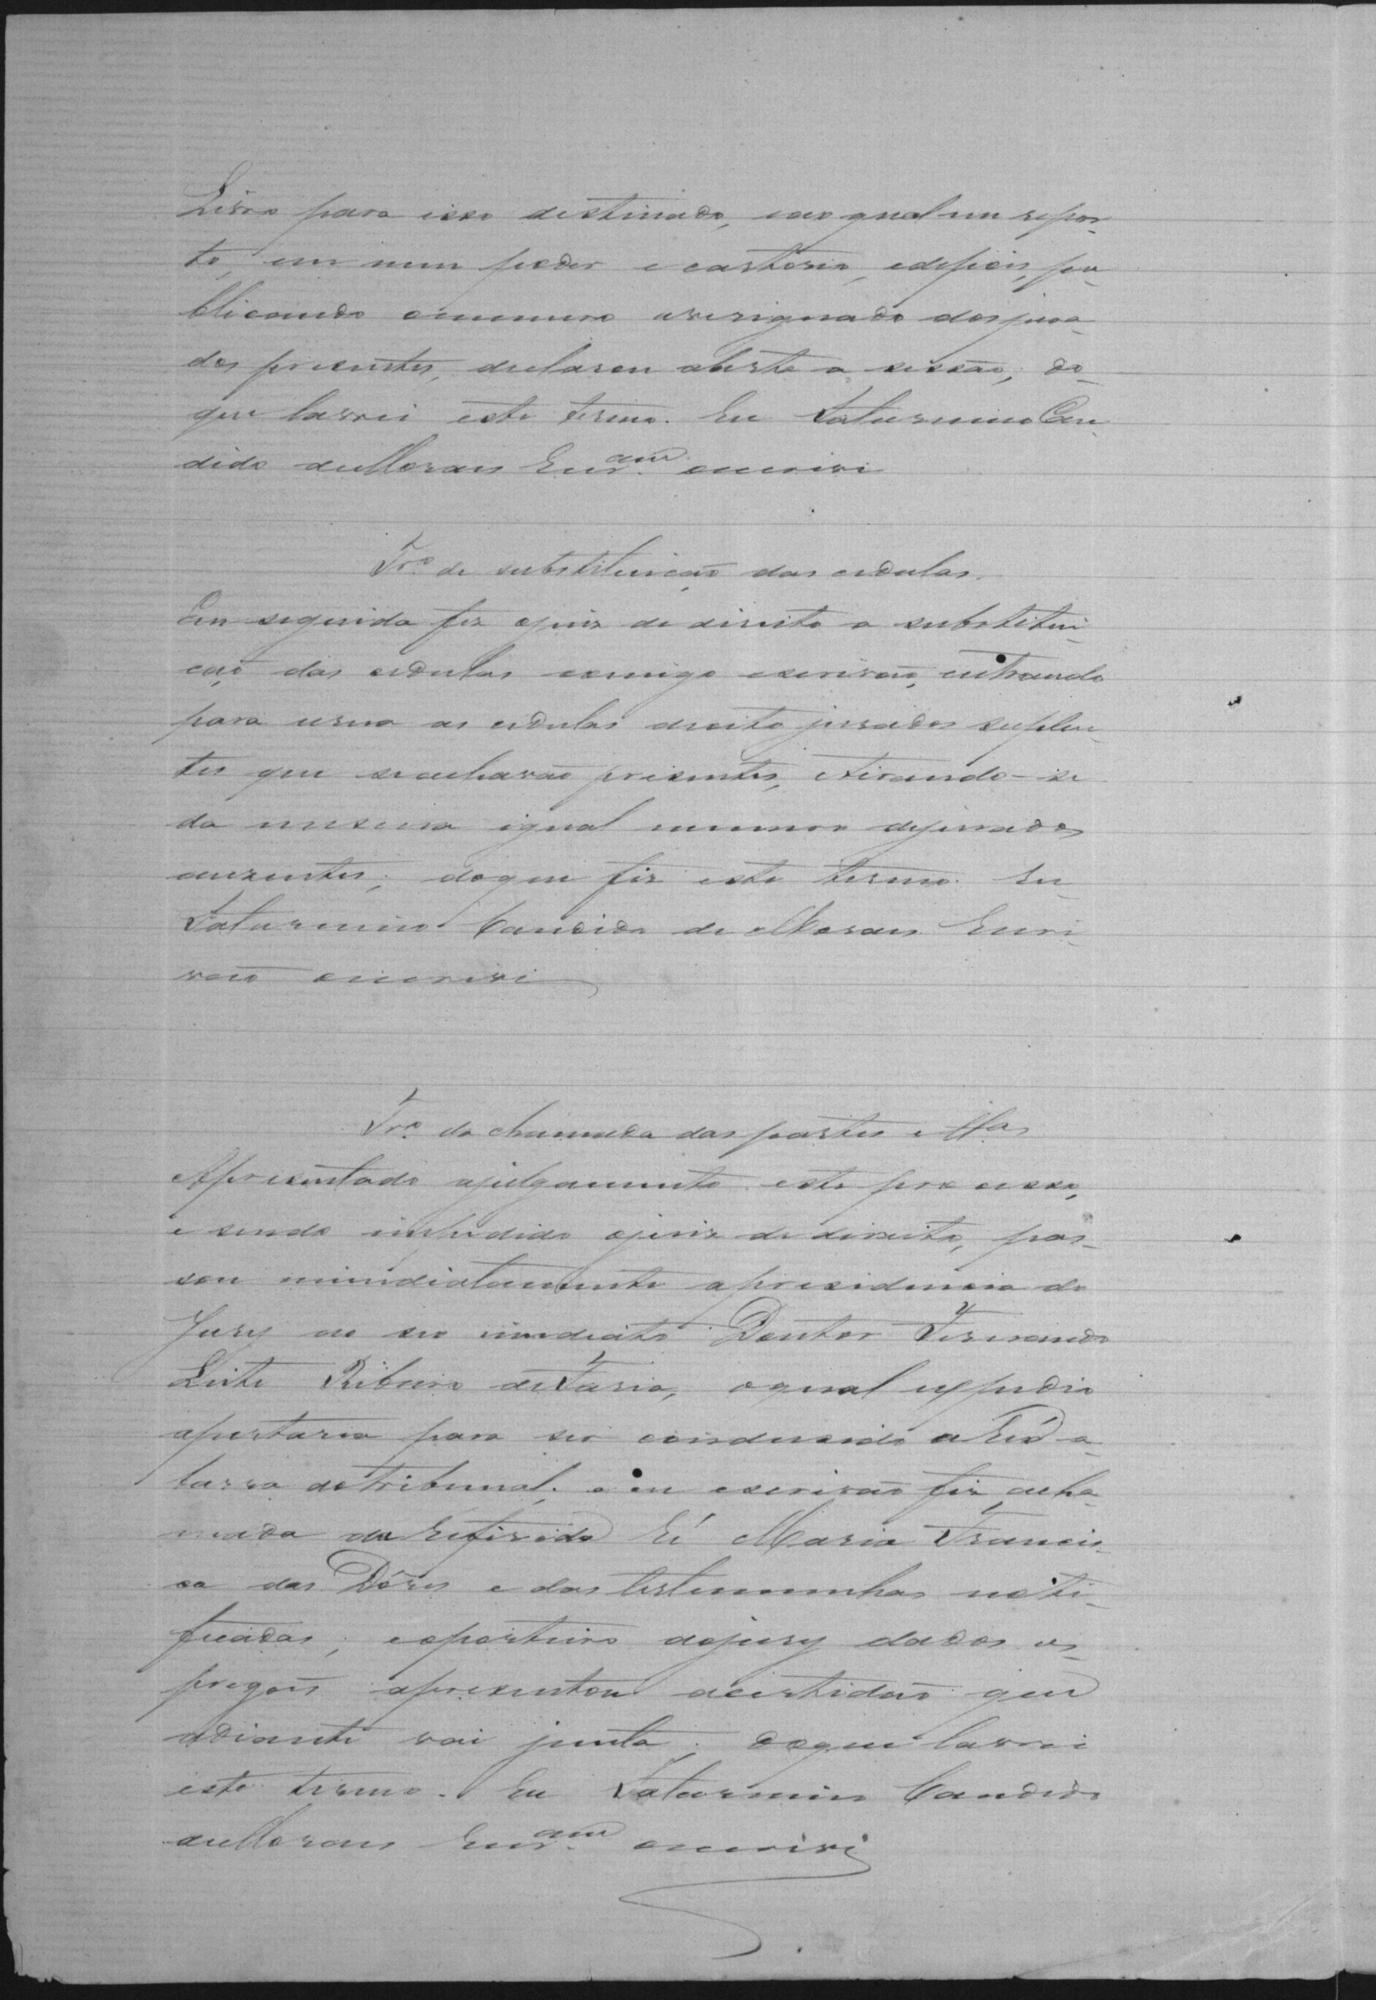 Livro para isso destinado, ao qual me repor-
to, em meu poder e cartorio, e depois, pu-
blicando o numero assignado dos jura-
dos presentes, declarou aberta a sessão; do
que lavrei este termo. Eu Saturnino Can-
dido de Moraes Escr.am escrivi
Tr.º de substituição das cedulas.
Em seguida fez o juiz de direito a substitui-
ção das cedulas comigo escrivão, entrando
para urna as cedulas de oito jurados suplen-
tes que se acharão presentes, e tirando-se
da mesma igual numero de jurados
auzentes; do que fiz este termo. Eu
Saturnino Candido de Moraes Escri-
vão escrivi
Tr.º da chamada das partes e t.as
Apresentado a julgamento este processo,
e sendo impedido o juiz de direito, pas-
sou immidiatamente a presidencia do
Jury ao seo immediato Doutor Fernando
Leite Ribeiro de Faria, o qual expedio
a portaria para ser conduzida a Ré a
barra do tribunal; e eu escrivão fiz a cha-
mada da referida Ré Maria Francis-
ca das Dôres e das testemunhas noti-
ficadas; e o porteiro do jury dados os
pregões apresentou a certidão que
adiante vai junta; do que lavrei
este termo. Eu Saturnino Candido
de Moraes Escr.am escrivi